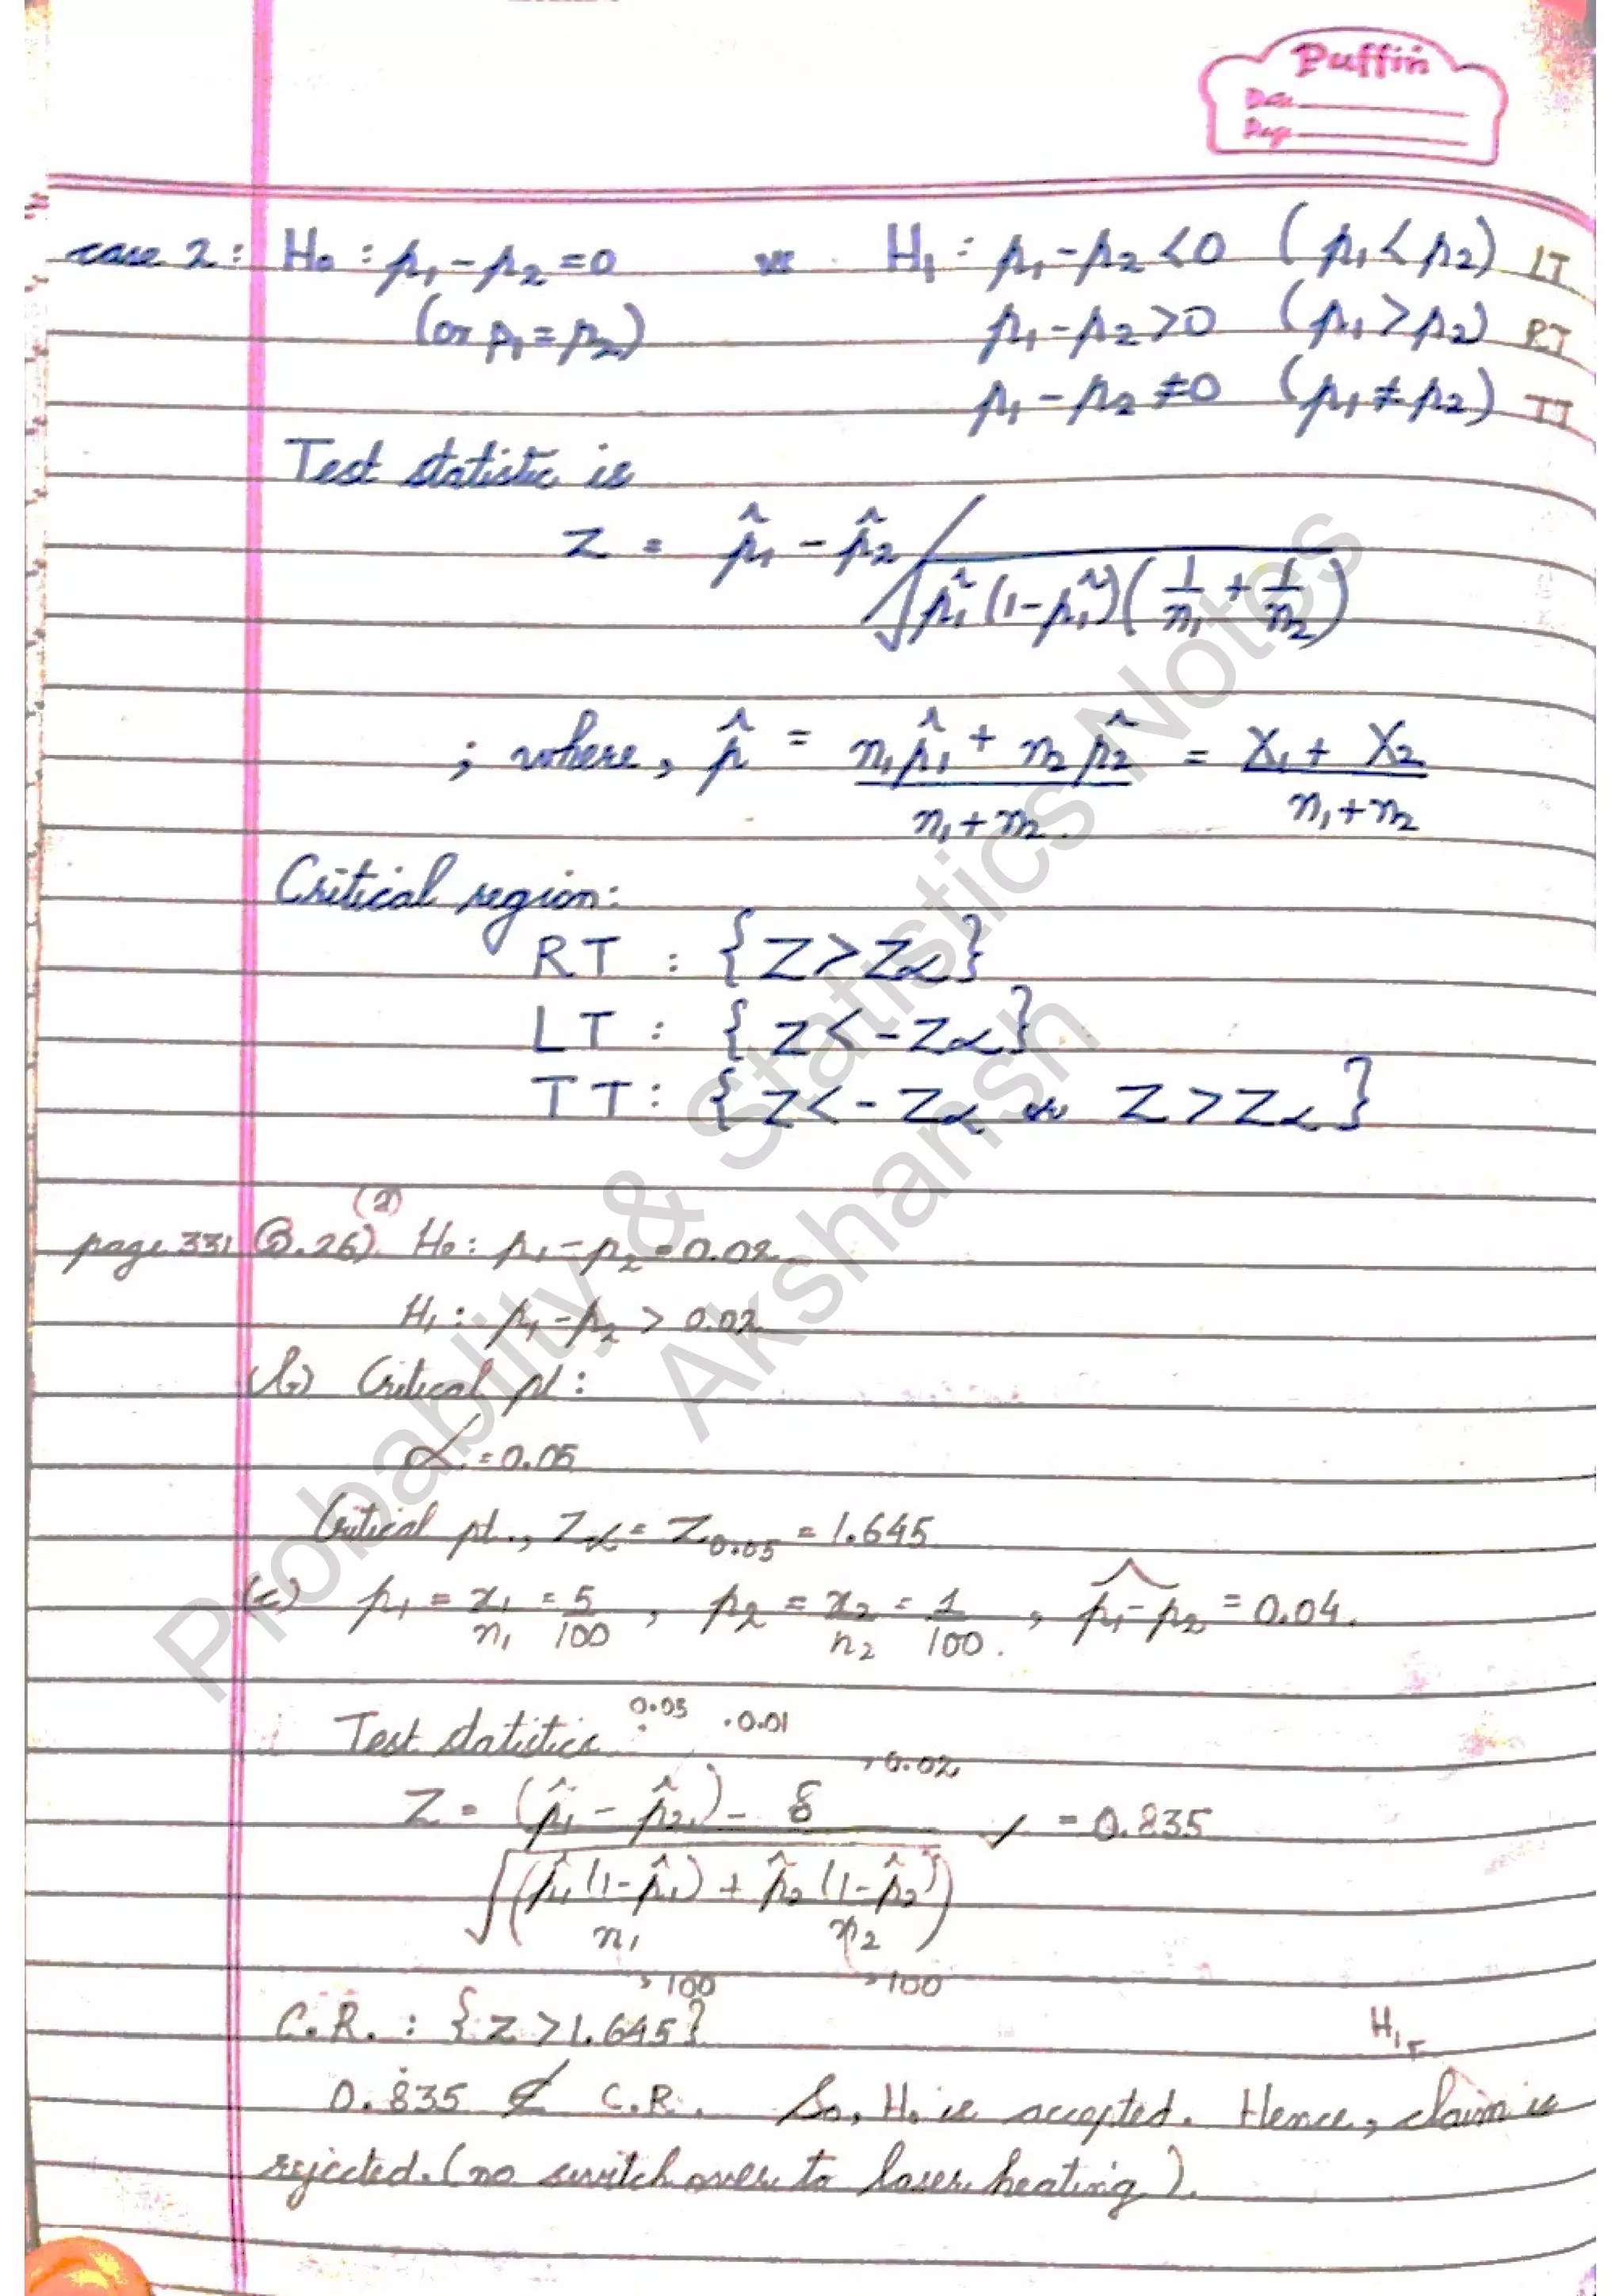 Puffin
Date
Page
case 2: H₀ : p₁ - p₂ = 0 vs H₁ : p₁ - p₂ < 0 (p₁ < p₂) LT
(or p₁ = p₂) p₁ - p₂ > 0 (p₁ > p₂) RT
p₁ - p₂ ≠ 0 (p₁ ≠ p₂) TT
Test statistic is
Z = p̂₁ - p̂₂ / √(p̂₁(1-p̂₁)(1/n₁ + 1/n₂))
; where, p̂ = (n₁p̂₁ + n₂p̂₂)/(n₁+n₂) = (X₁ + X₂)/(n₁+n₂)
Critical region:
RT : {Z > Zα}
LT : {Z < -Zα}
TT : {Z < -Zα or Z > Zα}
page 331 (9.26) (a) H₀ : p₁ - p₂ = 0.02
H₁ : p₁ - p₂ > 0.02
(b) Critical pt :
α = 0.05
Critical pt., Zα = Z₀.₀₅ = 1.645
(c) p₁ = x₁/n₁ = 5/100 , p₂ = x₂/n₂ = 1/100 . , p₁-p₂^ = 0.04.
Test statistics 0.05 0.01 0.02
Z = ((p̂₁ - p̂₂) - δ) / √(p̂₁(1-p̂₁)/n₁ + p̂₂(1-p̂₂)/n₂) ✓ = 0.835
100 100
C.R. : {Z > 1.645} H₁
0.835 ∉ C.R. So, H₀ is accepted. Hence, claim is
rejected. (no switch over to laser heating).
Probablity & Statistics Notes
Akshansh